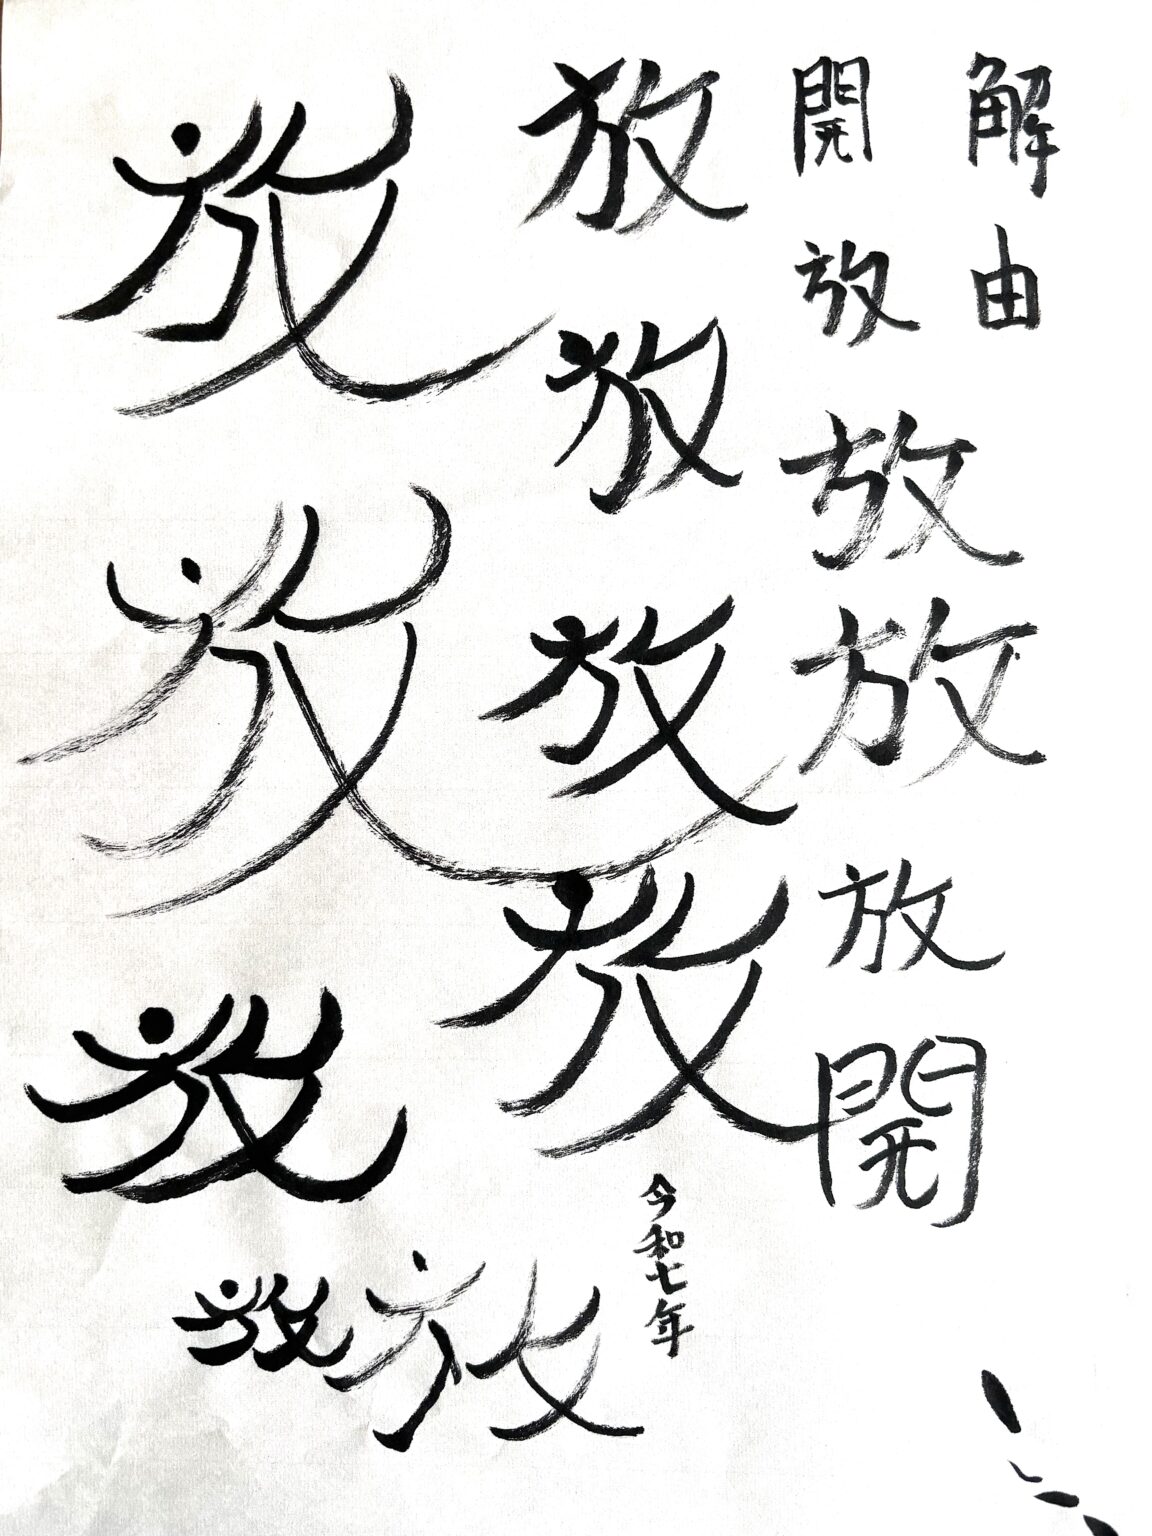 解由
開放放放放開
放放放放
令和七年
放
放放放放